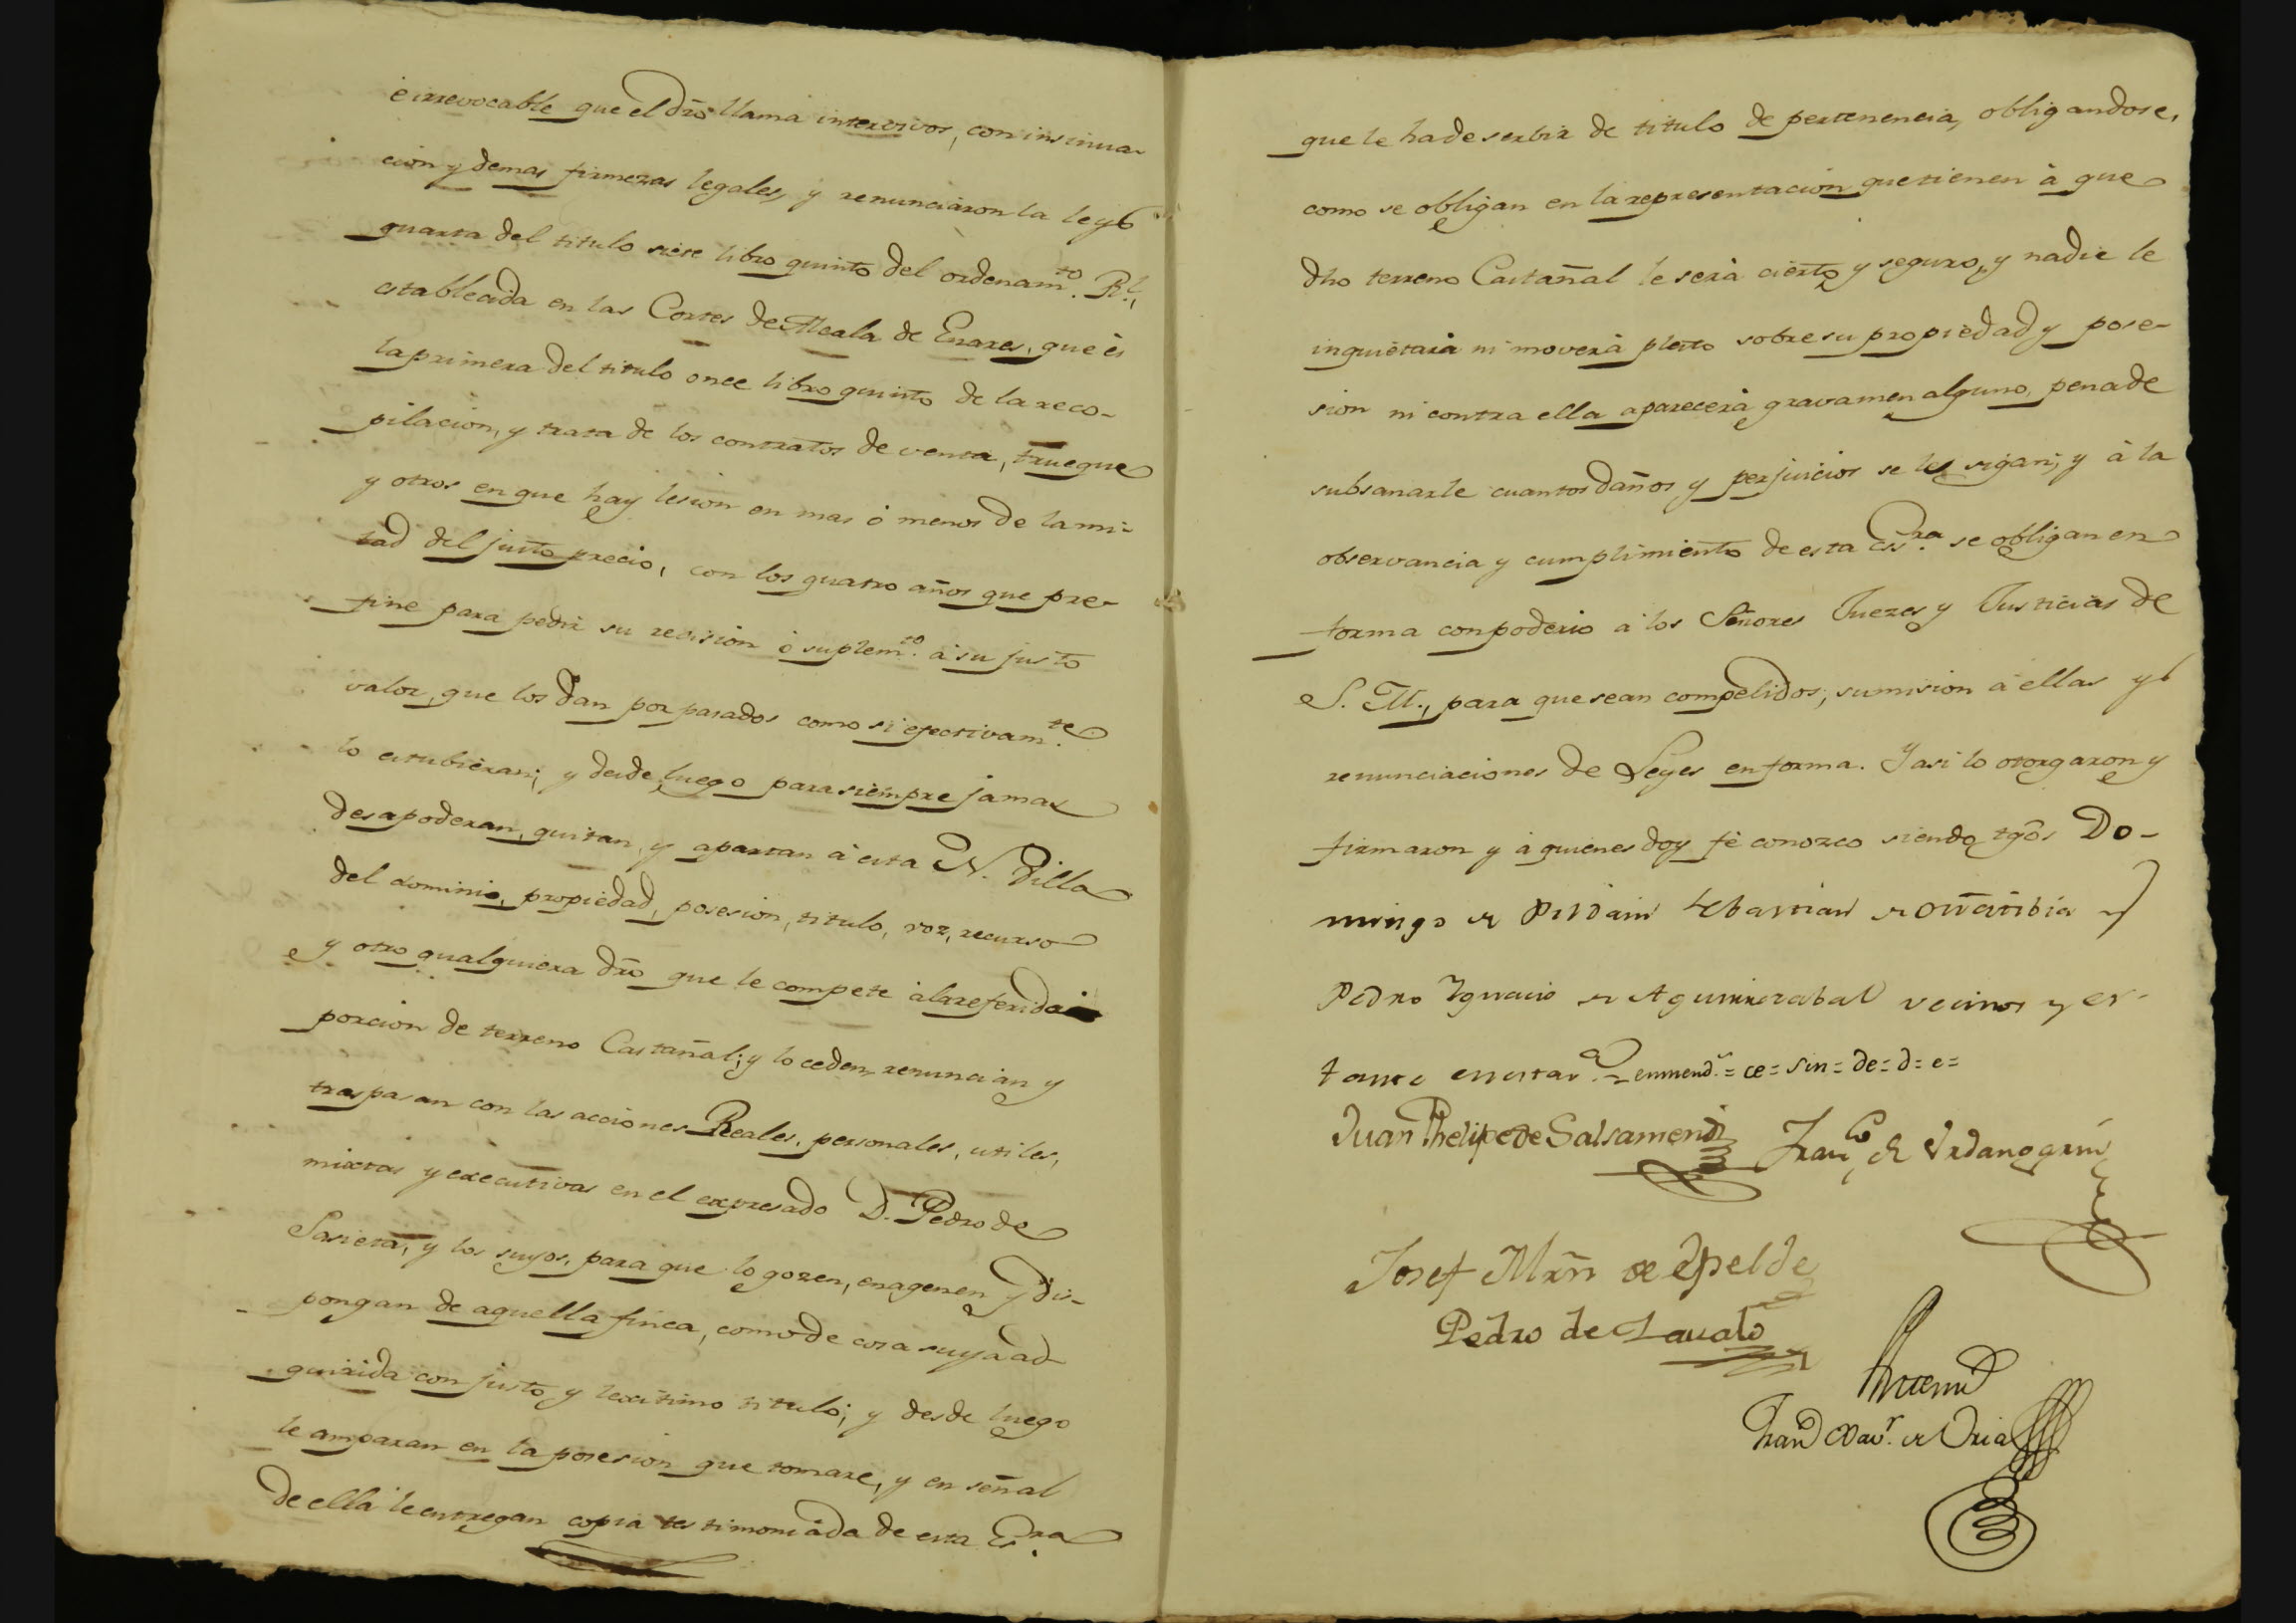 è irrevocable que èl dro llama intervivos, con insinua-
cion y demas firmezas legales, y renunciaron la ley
quarta del titulo siete libro quinto del ordenamto. Rl.,
establecida en las Cortes de Alcala de Enares, que ès
la primera del titulo once libro quinto de la reco-
pilacion, y trata de los contratos de venta, trueque
y otros en que hay lesion en mas ò menos de la mi-
tad del justo precio, con los quatro años que pre-
fine para pedir su recision ò suplemto. à su justo
valor, que los dan por pasados como si efectivamte.
lo estubieran; y desde luego para siempre jamas
desapoderan, quitan, y apartan à esta N. Villa
del dominio, propiedad, posesion, titulo, voz, recurso
y otro qualquiera dro que le compete à la referida
porcion de terreno Castañal; y lo ceden, renuncian y
traspasan con las acciones Reales, personales, utiles,
mixtas y executivas en el expresado D. Pedro de
Sasieta, y los suyos, para que lo gozen, enagenen y dis-
pongan de aquella finca, como de cosa suya ad-
quirida con justo y lexitimo titulo; y desde luego
le amparan en la posesion que tomare, y en señal
de ella le entregan copia testimoniada de esta Esra.
que le ha de serbir de titulo de pertenencia, obligandose,
como se obligan en la representacion que tienen à que
dho terreno Castañal le serà cierto y seguro, y nadie le
inquietarà ni moverà pleito sobre su propiedad y pose-
sion ni contra ella aparecerà gravamen alguno, pena de
subsanarle cuantos daños y perjuicios se le sigan; y à la
observancia y cumplimiento de esta Essra. se obligan en
forma con poderio à los Señores Juezes y Justicias de
S. M., para que sean compelidos, sumision à ellas y
renunciaciones de Leyes en forma. Y asi lo otorgaron y
firmaron y à quienes doy fè conozco siendo tgos Do-
mingo de Sebastian de Oñatibia y
Pedro Ignacio de Aguirrezabal vecinos y es-
tante en esta = enmend.s = ce = sin = de = d = e =
Juan Phelipe de Salsamendi Franco. de Urdangarin
Josef Mrn de Epelde
Pedro de Lavalo
Antemi
Fran Xavr. de Oria